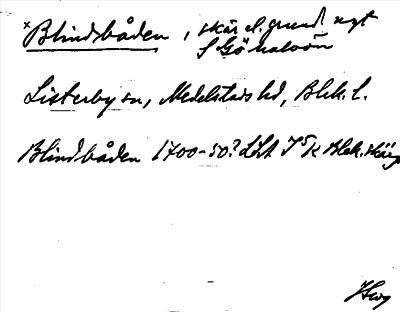 ×Blindbåden, skär el. grund ngt
S Gö halvön
Listerby sn, Medelstads hd, Blek. l.
Blindbåden 1700-50? LSA Blek. skärg